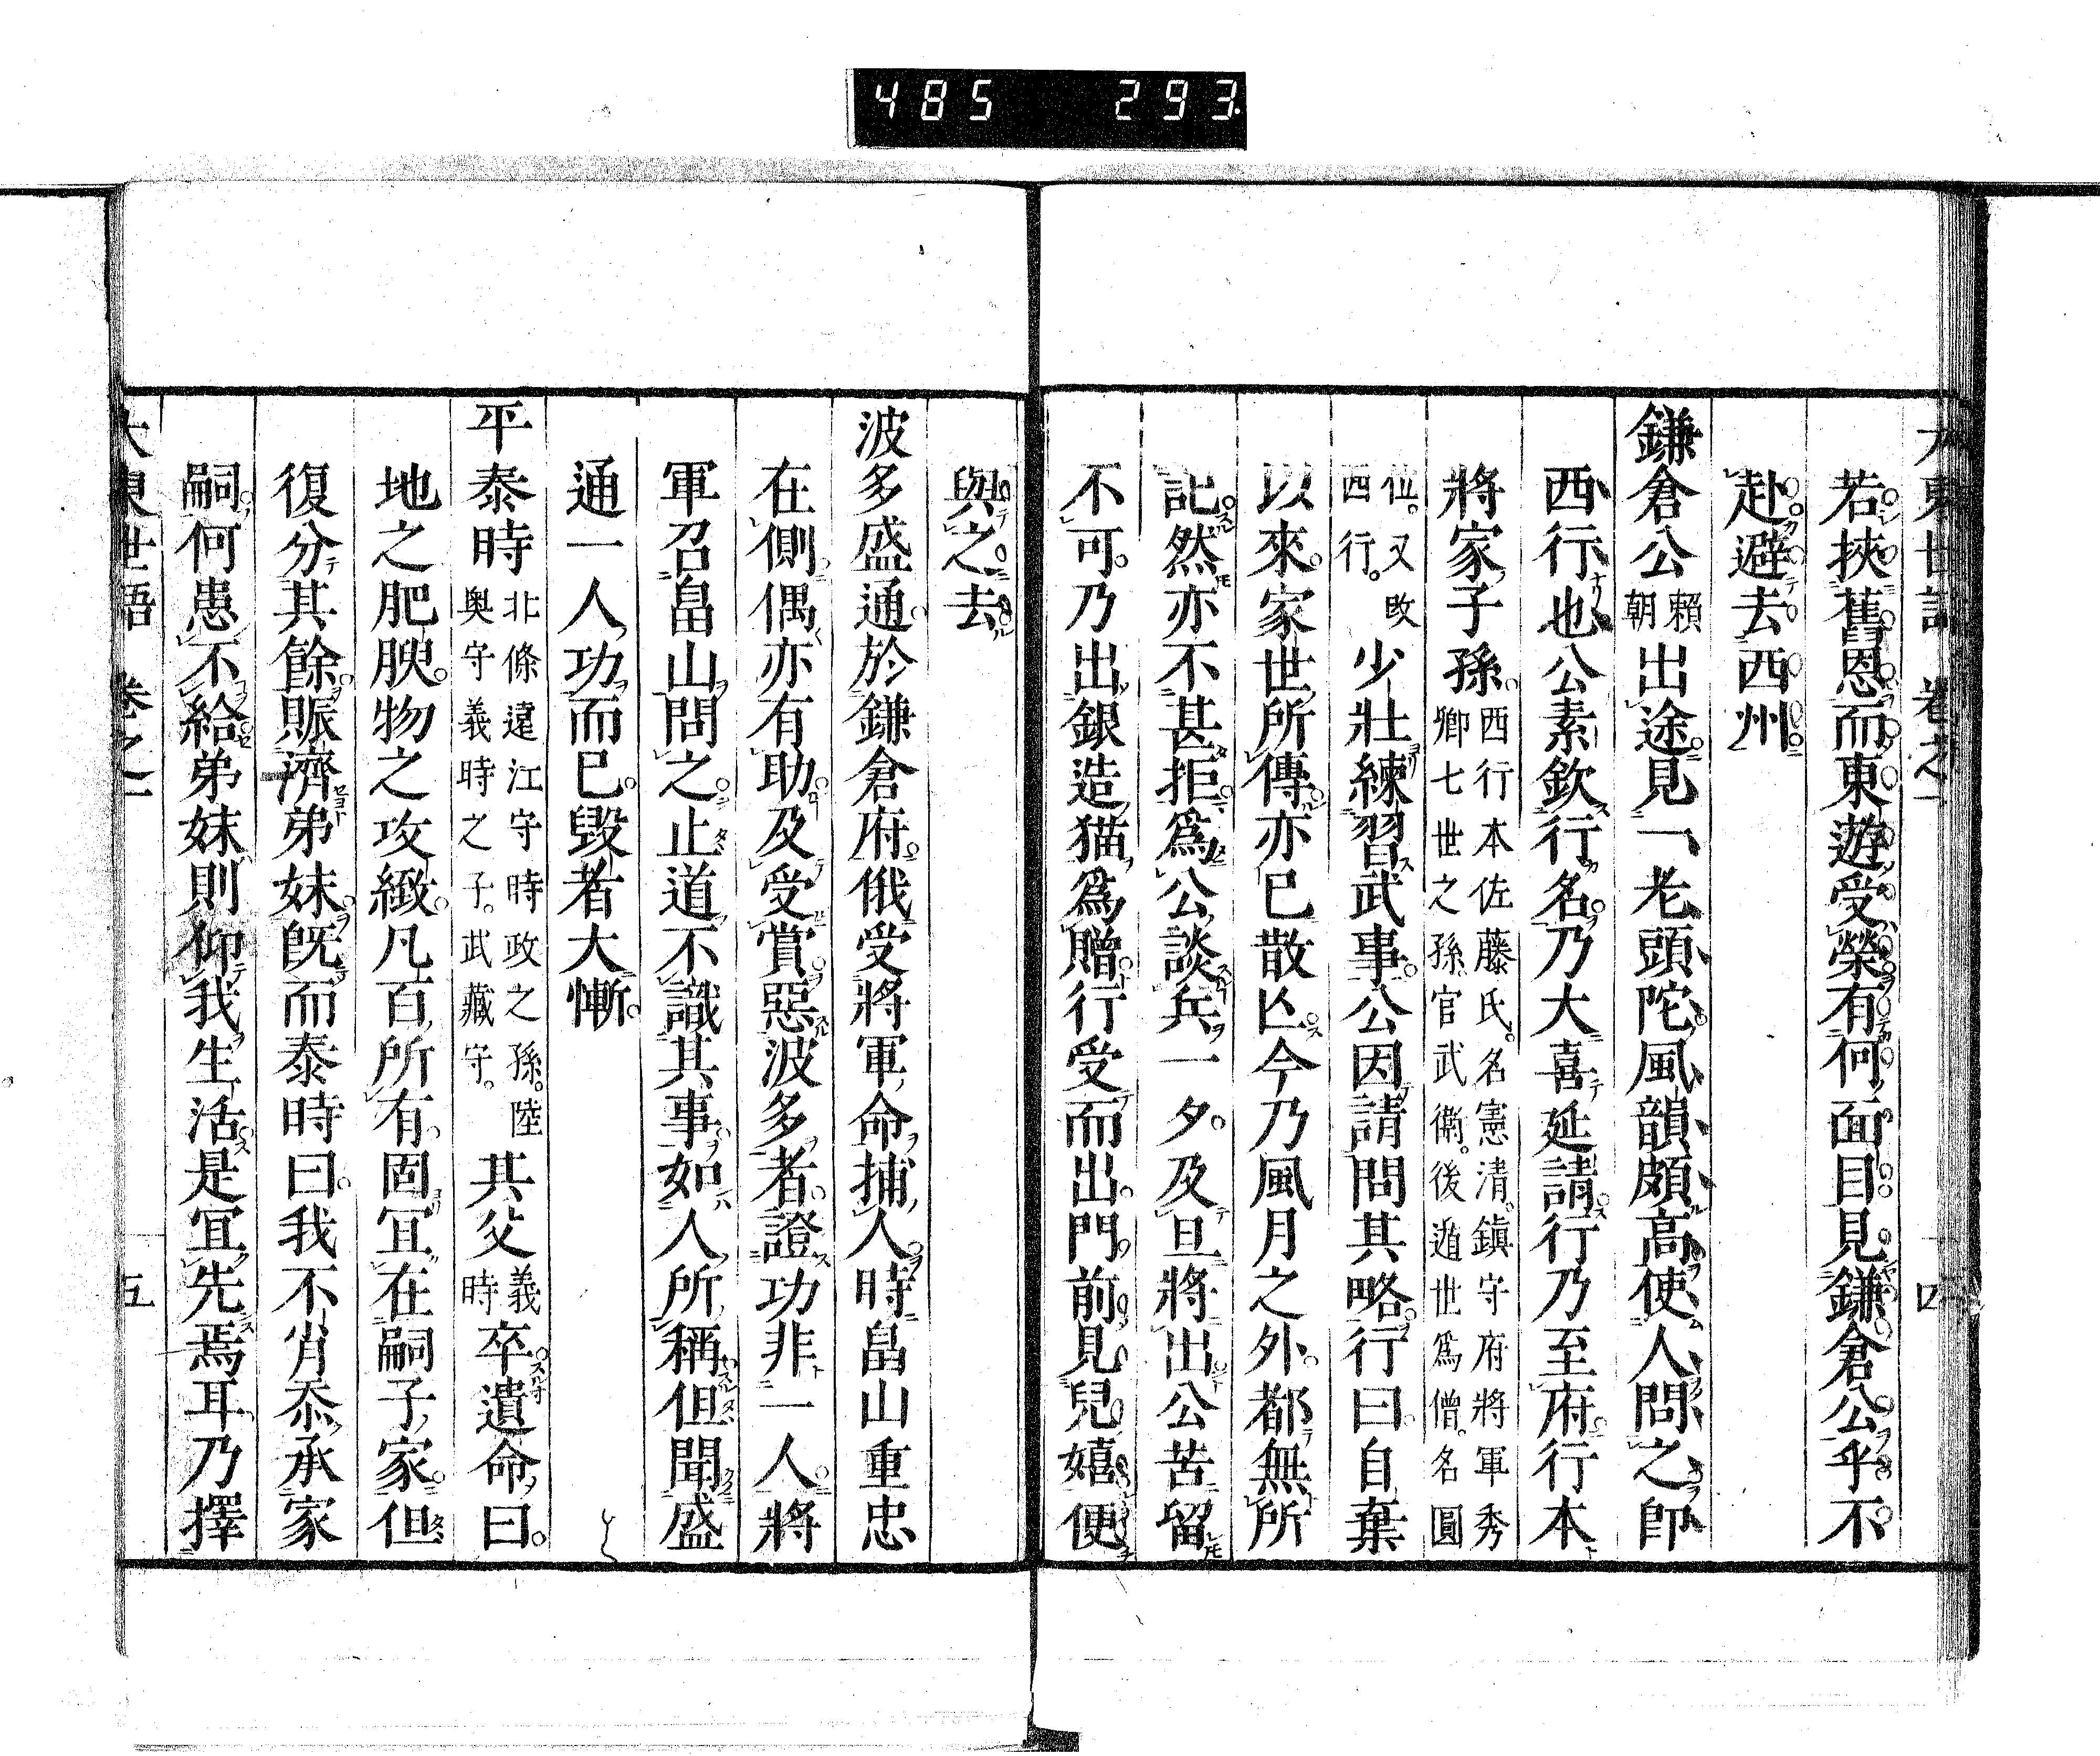 485 293
大東世語 卷之一 十四
若挾舊恩而東遊受榮有何面目見鎌倉公乎不
赴避去西州
鎌倉公賴朝出途見一老頭陀風韻頗高使人問之卽
西行也公素欽行名乃大喜延請行乃至府行本
將家子孫西行本佐藤氏名憲淸鎮守府將軍秀
鄉七世之孫官武衞後遁世爲僧名圓
位又改
西行少壯練習武事公因請問其略行曰自棄
以來家世所傳亦已散亾今乃風月之外都無所
記然亦不甚拒爲公談兵一夕及旦將出公苦留
不可乃出銀造猫爲贈行受而出門前見兒嬉便
與之去
波多盛通於鎌倉府俄受將軍命捕人時畠山重忠
在側偶亦有助及受賞惡波多者證功非一人將
軍召畠山問之止道不識其事如人所稱但聞盛
通一人功而已毀者大慚
平泰時北條遠江守時政之孫陸
奧守義時之子武藏守其父義時卒遺命曰
地之肥腴物之攻緻凡百所有固宜在嗣子家但
復分其餘賑濟弟妹既而泰時曰我不肖忝承家
嗣何患不給弟妹則仰我生活是宜先焉耳乃擇
大東世語 卷之一 五